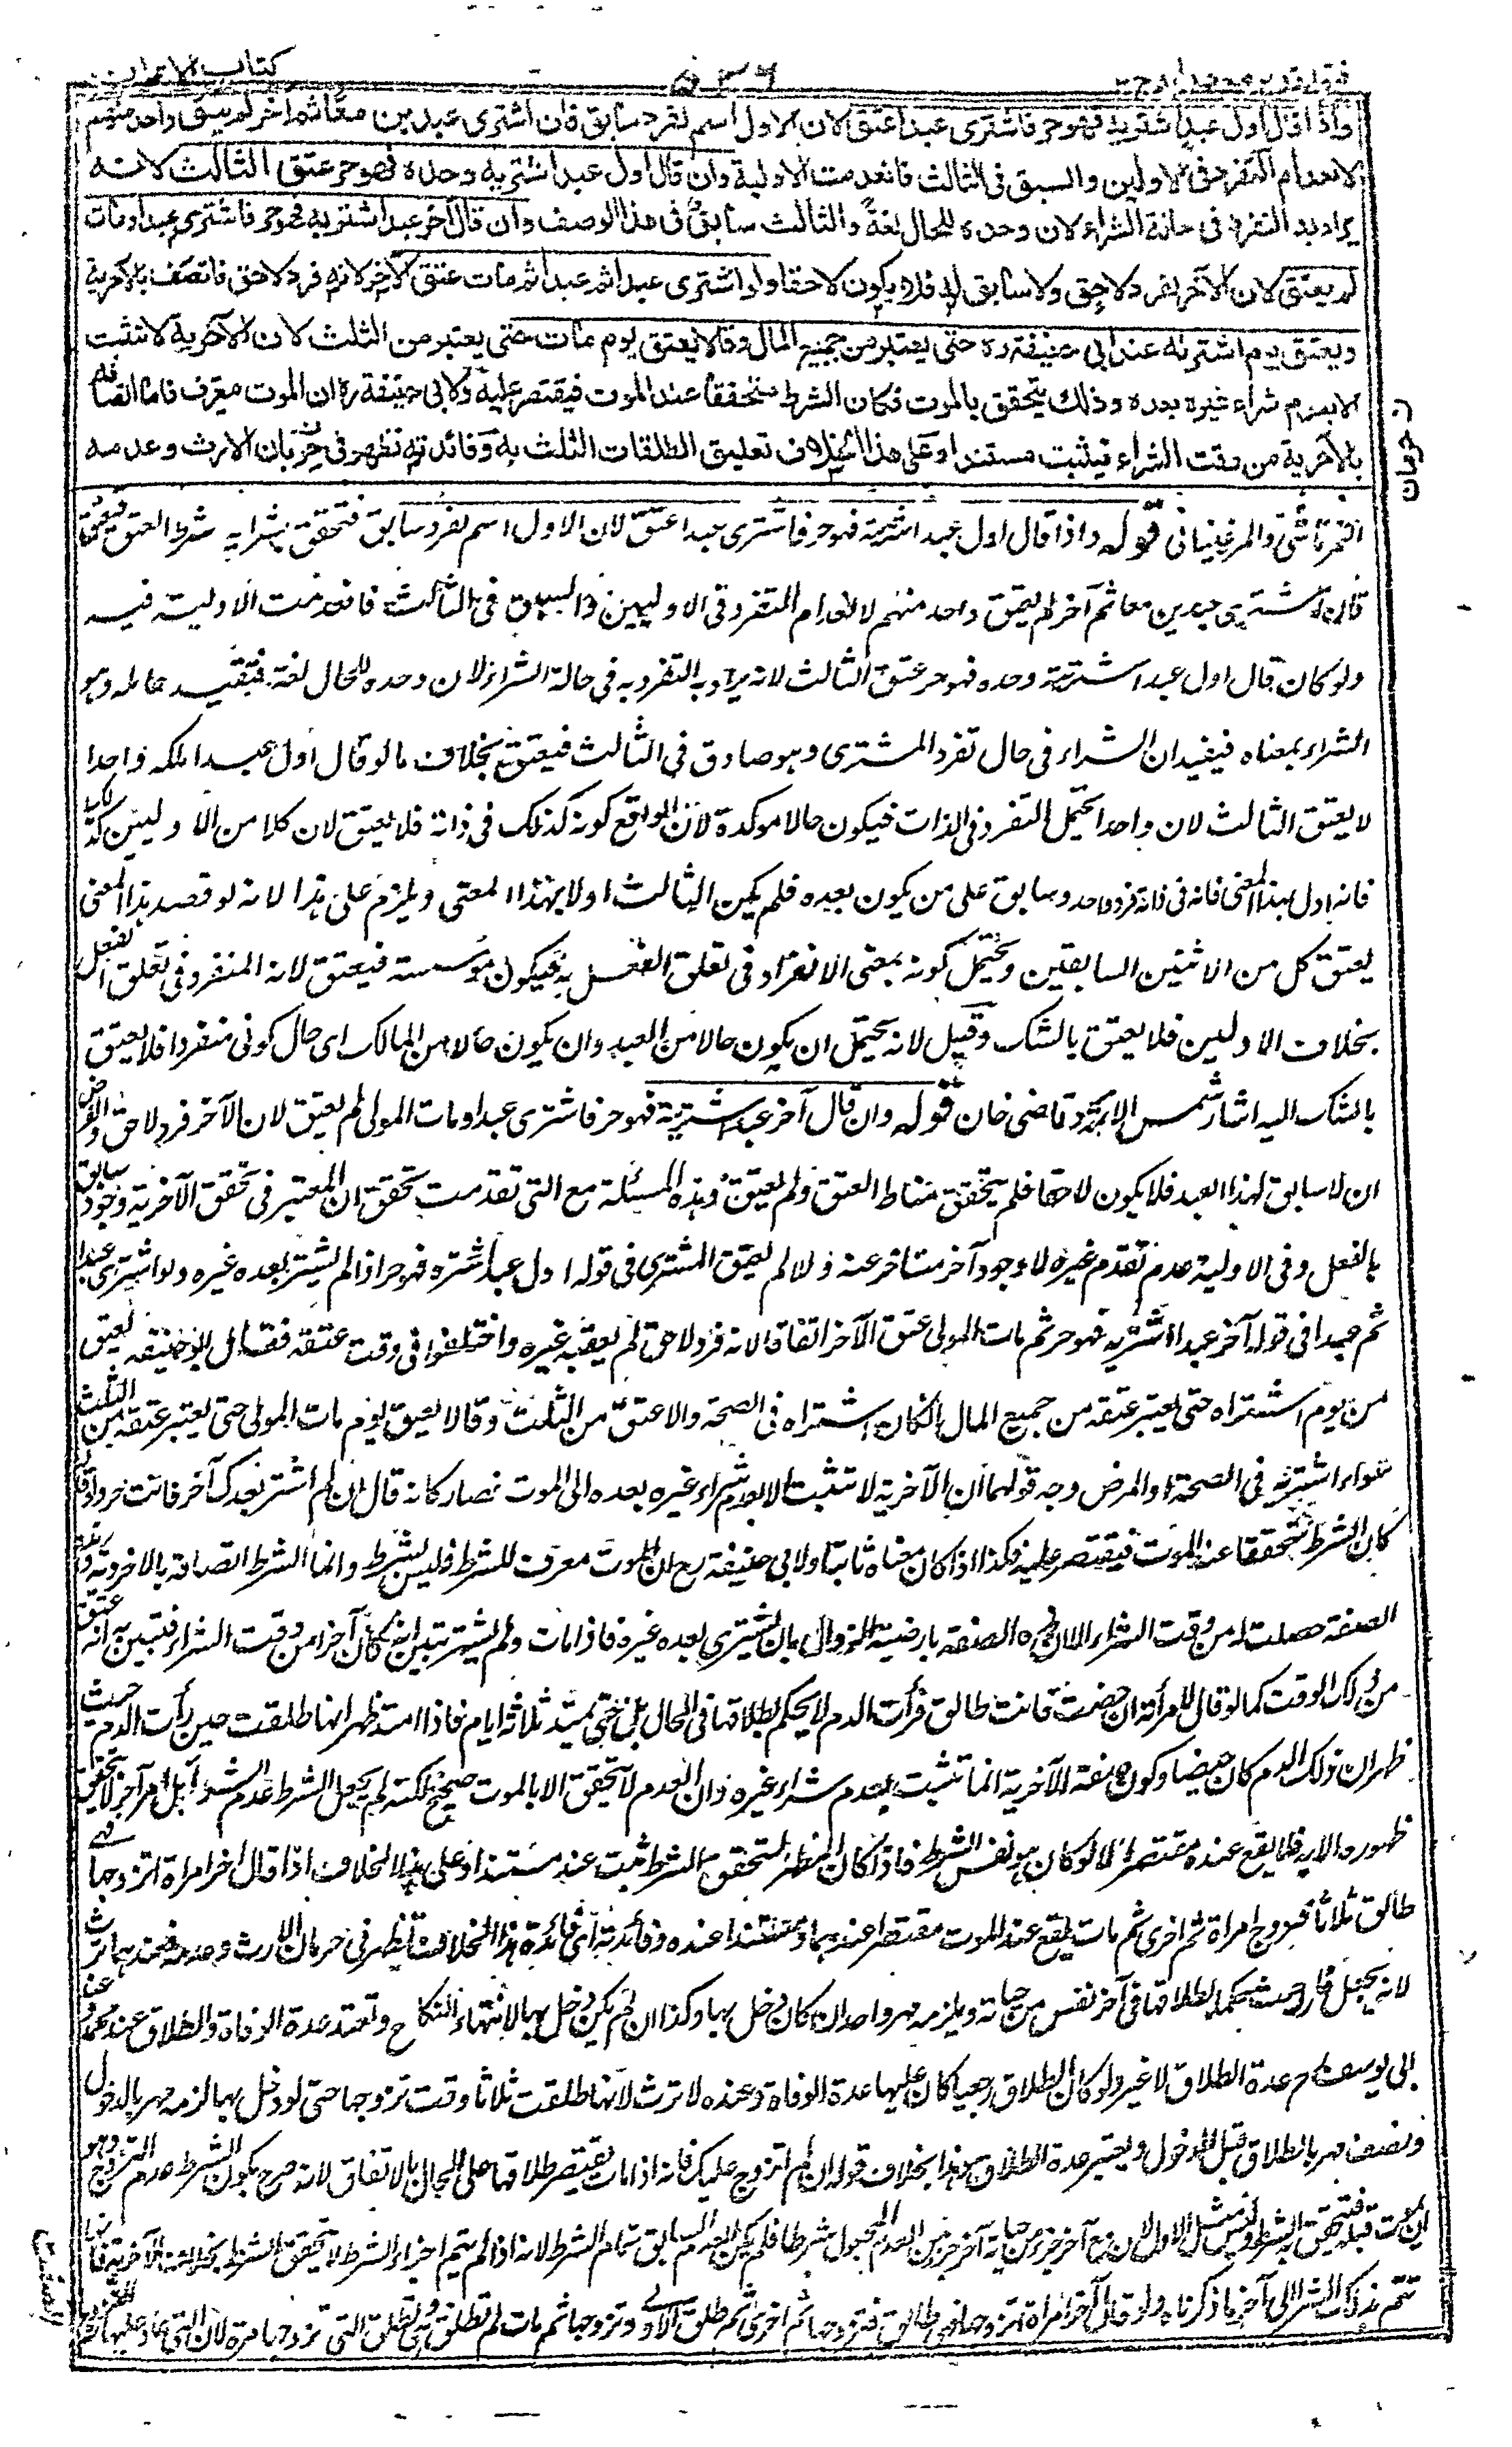 كتاب الايمان
٥٣٦
فتح القدير مع هداية
واذا قال اول عبد اشتريه فهو حر فاشترى عبدا عتق لان الاول اسم لفرد سابق فان اشترى عبدين معا ثم اخر لم يعتق واحد منهم
لانعدام التفرد فى الاولين والسبق فى الثالث فانعدمت الاولية وان قال اول عبد اشتريه وحده فهو حر عتق الثالث لانه
يراد به التفرد فى حالة الشراء لان وحده للحال لغة والثالث سابق فى هذا الوصف وان قال آخر عبد اشتريه فهو حر فاشترى عبدا ومات
لم يعتق لان الآخر لفرد لاحق ولا سابق له فلا يكون لاحقا ولو اشترى عبدا ثم عبدا ثم مات عتق الآخر لانه فرد لاحق فاتصف بالآخرية
ويعتق يوم اشتراه عند ابى حنيفة ره حتى يعتبر من جميع المال وقالا يعتق يوم مات حتى يعتبر من الثلث لان الآخرية لا تثبت
الا بعدم شراء غيره بعده وذلك يتحقق بالموت فكان الشرط متحققا عند الموت فيقتصر عليه ولابى حنيفة ره ان الموت معرف فاما اتصافه
بالآخرية من وقت الشراء فيثبت مستندا وعلى هذا الخلاف تعليق الطلقات الثلث به وفائدته تظهر فى جريان الارث وعدمه
ن حرمان
التمرتاشى والمرغينانى قوله واذا قال اول عبد اشتريه فهو حر فاشترى عبدا عتق لان الاول اسم لفرد سابق فتحقق بشرايه شرط العتق فيعتق
فان اشترى عبدين معا ثم آخر لم يعتق واحد منهم لانعدام التفرد فى الاوليين والسبق فى الثالث فانعدمت الاولية فيه
ولو كان قال اول عبد اشتريه وحده فهو حر عتق الثالث لانه يراد به التفرد به فى حالة الشراء لان وحده للحال لغة فتقيد عامله وهو
الشراء بمعناه فيفيد ان الشراء فى حال تفرد المشترى وهو صادق فى الثالث فيعتق بخلاف ما لو قال اول عبد املكه واحدا
لا يعتق الثالث لان واحدا يحتمل التفرد فى الذات فيكون حالا موكدة لان الواقع كونه كذلك فى ذاته فلا يعتق لان كلا من الاوليين كذلك
فانه اول بهذا المعنى فانه فى ذاته فرد واحد وسابق على من يكون بعده فلم يكن الثالث اولا بهذا المعنى ويلزم على هذا لانه لو قصد هذا المعنى
يعتق كل من الاثنين السابقين ويحتمل كونه بمعنى الانفراد فى تعلق الفعل به فيكون مؤسسة فيعتق لانه المنفرد فى تعلق الفعل
بخلاف الاوليين فلا يعتق بالشك وقيل لانه يحتمل ان يكون حالا من العبد وان يكون حالا من المالك اى حال كونى منفردا فلا يعتق
بالشك اليه اشار شمس الائمة وقاضى خان قوله وان قال آخر عبد اشتريه فهو حر فاشترى عبدا ومات المولى لم يعتق لان الآخر فرد لاحق والفرض
ان لا سابق لهذا العبد فلا يكون لاحقا فلم يتحقق مناط العتق ولم يعتق وهذه المسئلة مع التى تقدمت تحقق ان المعتبر فى تحقق الآخرية وجود سابق
بالفعل وفى الاولية عدم تقدم غيره لا وجود آخر متاخر عنه والا لم يعتق المشترى فى قوله اول عبد اشتره فهو حر اذا لم يشتر بعده غيره ولو اشترى عبدا
ثم عبدا فى قوله آخر عبد اشتريه فهو حر ثم مات المولى عتق الآخر اتفاقا لانه فرد لاحق لم يعقبه غيره واختلفوا فى وقت عتقه فقال ابو حنيفة يعتق
من يوم اشتراه حتى يعتبر عتقه من جميع المال ان كان اشتراه فى الصحة والا عتق من الثلث وقالا يعتق يوم مات المولى حتى يعتبر عتقه من الثلث
سواء اشتريه فى الصحة او المرض وجه قولهما ان الآخرية لا تثبت الا بعدم شراء غيره بعده الى الموت فصار كانه قال ان لم اشتر بعدك آخر فانت حر
كان الشرط متحققا عند الموت فيقتصر عليه فكذا اذا كان معناه ثابتا ولابى حنيفة رح ان الموت معرف للشرط فليس بشرط وانما الشرط اتصافه بالاخرية وهذه
الصفة حصلت له من وقت الشراء الا ان هذه الصفة بارضية الزوال بان يشترى بعده غيره فاذا مات ولم يشتر تبين انه كان آخرا من وقت الشراء فتبين انه عتق
من ذلك الوقت كما لو قال لامرأته ان حضت فانت طالق فرأت الدم لا يحكم بطلاقها فى الحال بل حتى يمتد ثلاثة ايام فاذا امتد ظهر انها طلقت حين رأت الدم حيث
ظهر ان ذلك الدم كان حيضا وكون صفة الآخرية انما تثبت بعدم شراء غيره وان العدم لا يتحقق الا بالموت صحيح لكنه لم يجعل الشرط عدم الشراء بل امر آخر لا يتحقق
ظهوره الا به فلا يقع عنده مقتصرا الا لو كان هو نفس الشرط فاذا كان المظهر لتحقق الشرط ثبت عنده مستندا وعلى هذا الخلاف اذا قال آخر امراة اتزوجها فهى
طالق ثلاثا فتزوج امراة ثم اخرى ثم مات يقع عند الموت مقتصرا عندهما ومستندا عنده وفائدته اى فائدة هذا الخلاف تظهر فى حرمان الارث وعدمه فعندهما ترث
لانه يجعل فارا حيث حكما بطلاقها فى آخر نفس من حياته ويلزمه مهر واحد ان كان دخل بها وكذا ان لم يكن دخل بها لانتهاء النكاح وتعتد عدة الوفاة والطلاق عند محمد وعند
ابى يوسف رح عدة الطلاق لا غير ولو كان الطلاق رجعيا كان عليها عدة الوفاة وعنده لا ترث لانها طلقت ثلاثا وقت تزوجها حتى لو دخل بها لزمه مهر بالدخول
ونصف مهر بالطلاق قبل الدخول ويعتبر عدة الطلاق وهذا بخلاف قوله ان لم اتزوج عليك فانه اذا مات يقتصر طلاقها على الحال بالاتفاق لانه صرح بكون الشرط عدم التزوج وهو
تتم بذلك الشراء الى آخر ما ذكرناه ولو قال آخر امراة اتزوجها فهى طالق فتزوجها ثم اخرى ثم طلق الاولى وتزوجها ثم مات لم تطلق هى وتطلق التى تزوجها مرة لان التى